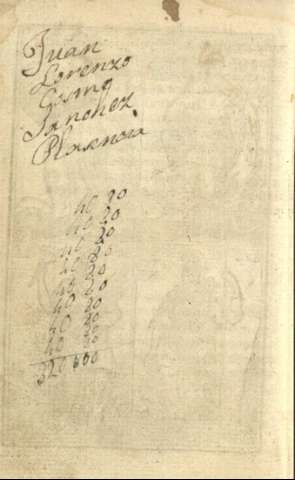 Juan
Lorenzo
Cosmo
Sanchez
Plasencia
40 20
40 20
40 20
40 20
40 20
40 20
40 20
40 20
40 20
320